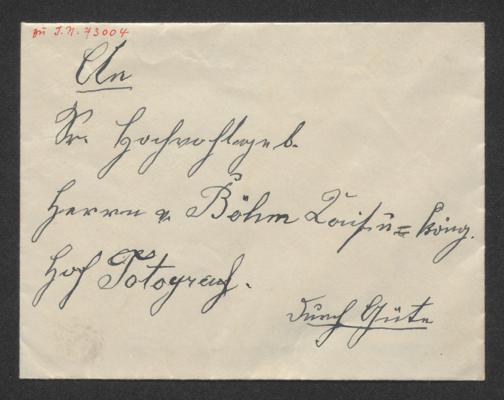 zu I.N. 73004
An
Sr. Hochwohlgeb.
Herrn v. Böhm Kaisu= köng.
Hof Potograf.
durch Güte